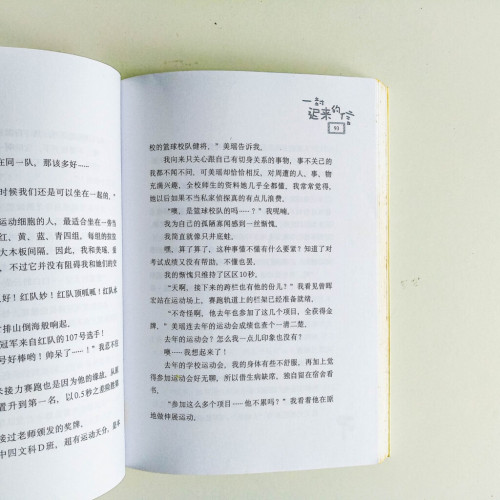 在同一队，那该多好……
时候我们还是可以坐在一起的。”
运动细胞的人，最适合坐在一旁当
红、黄、蓝、青四组，每组的棕绘
大木板间隔，因此，我和美瑶、董
，不过它并没有阻碍我和她们的变
好！红队妙！红队顶呱呱！红队永
排山倒海般响起。
冠军来自红队的107号选手！
号好棒哟！帅呆了……！”我忍不住
接力赛跑也是因为他的缘故，从最
置升到第一名，以0.5秒之差险胜
接过老师颁发的奖牌。
中四文科D班，超有运动天分，是本
一封
迟来的信
93
校的篮球校队健将，”美瑶告诉我。
我向来只关心跟自己有切身关系的事物，事不关己的
我都不闻不问，可美瑶却恰恰相反，对周遭的人、事、物
充满兴趣，全校师生的资料她几乎全都懂，我常常觉得，
她以后如果不当私家侦探真的有点儿浪费。
“噢，是篮球校队的吗……？”我呢喃。
我为自己的孤陋寡闻感到一丝惭愧。
我简直就像只井底蛙。
噢，算了算了，这种事懂不懂有什么要紧？知道了对
考试成绩又没有帮助，不懂也罢。
我的惭愧只维持了区区10秒。
“天啊，接下来的跨栏也有他的份儿！”我看见曾晖
宏站在运动场上，赛跑轨道上的栏架已经准备就绪。
“不奇怪啊，他去年也参加了这几个项目，全获得金
牌。”美瑶连去年的运动会成绩也查个一清二楚。
去年的运动会？怎么我一点儿印象也没有？
噢……我想起来了！
去年的学校运动会，我的身体有些不舒服，再加上觉
得参加运动会好无聊，所以借生病缺席，独自留在宿舍看
书。
“参加这么多个项目……他不累吗？”我看着他在原
地做伸展运动。